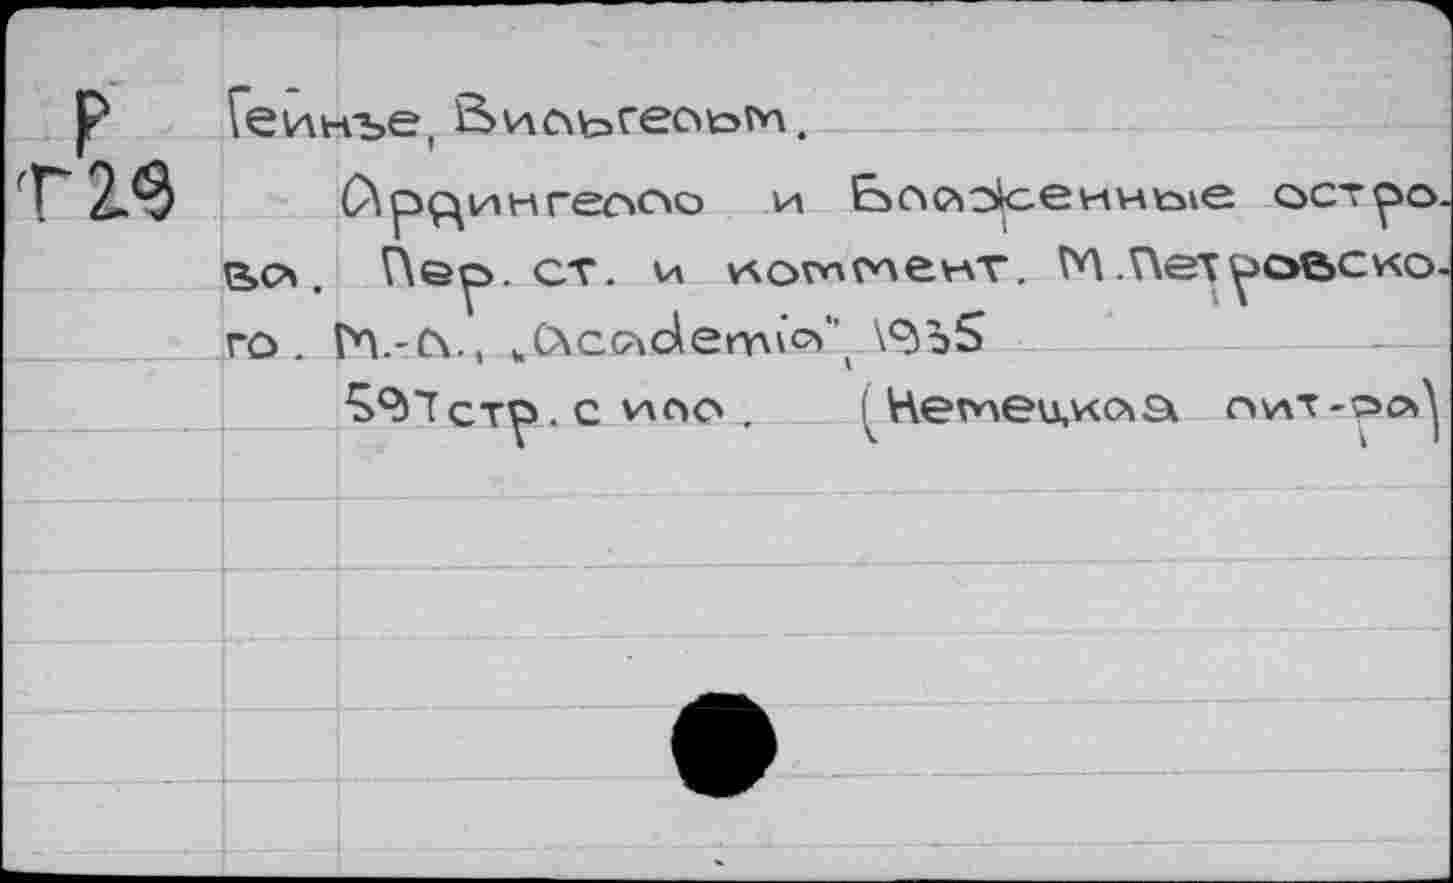 Р Гейнзе, Вильгельм.
Г29 Ардингелло и Блаженные остро-
ва. Пер. ст. и коммент. М.Петровско-
го. М.-Л., "Academia", 1935
597 стр. с илл. (Немецкая лит-ра)